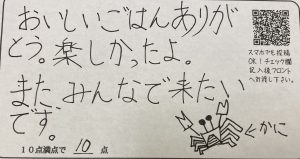 おいしいごはんありが
とう。楽しかったよ。
また、みんなで来たい
です。
かに
10点満点で 10 点
スマホでも投稿
OK！チェック欄
記入後フロント
へお渡し下さい。